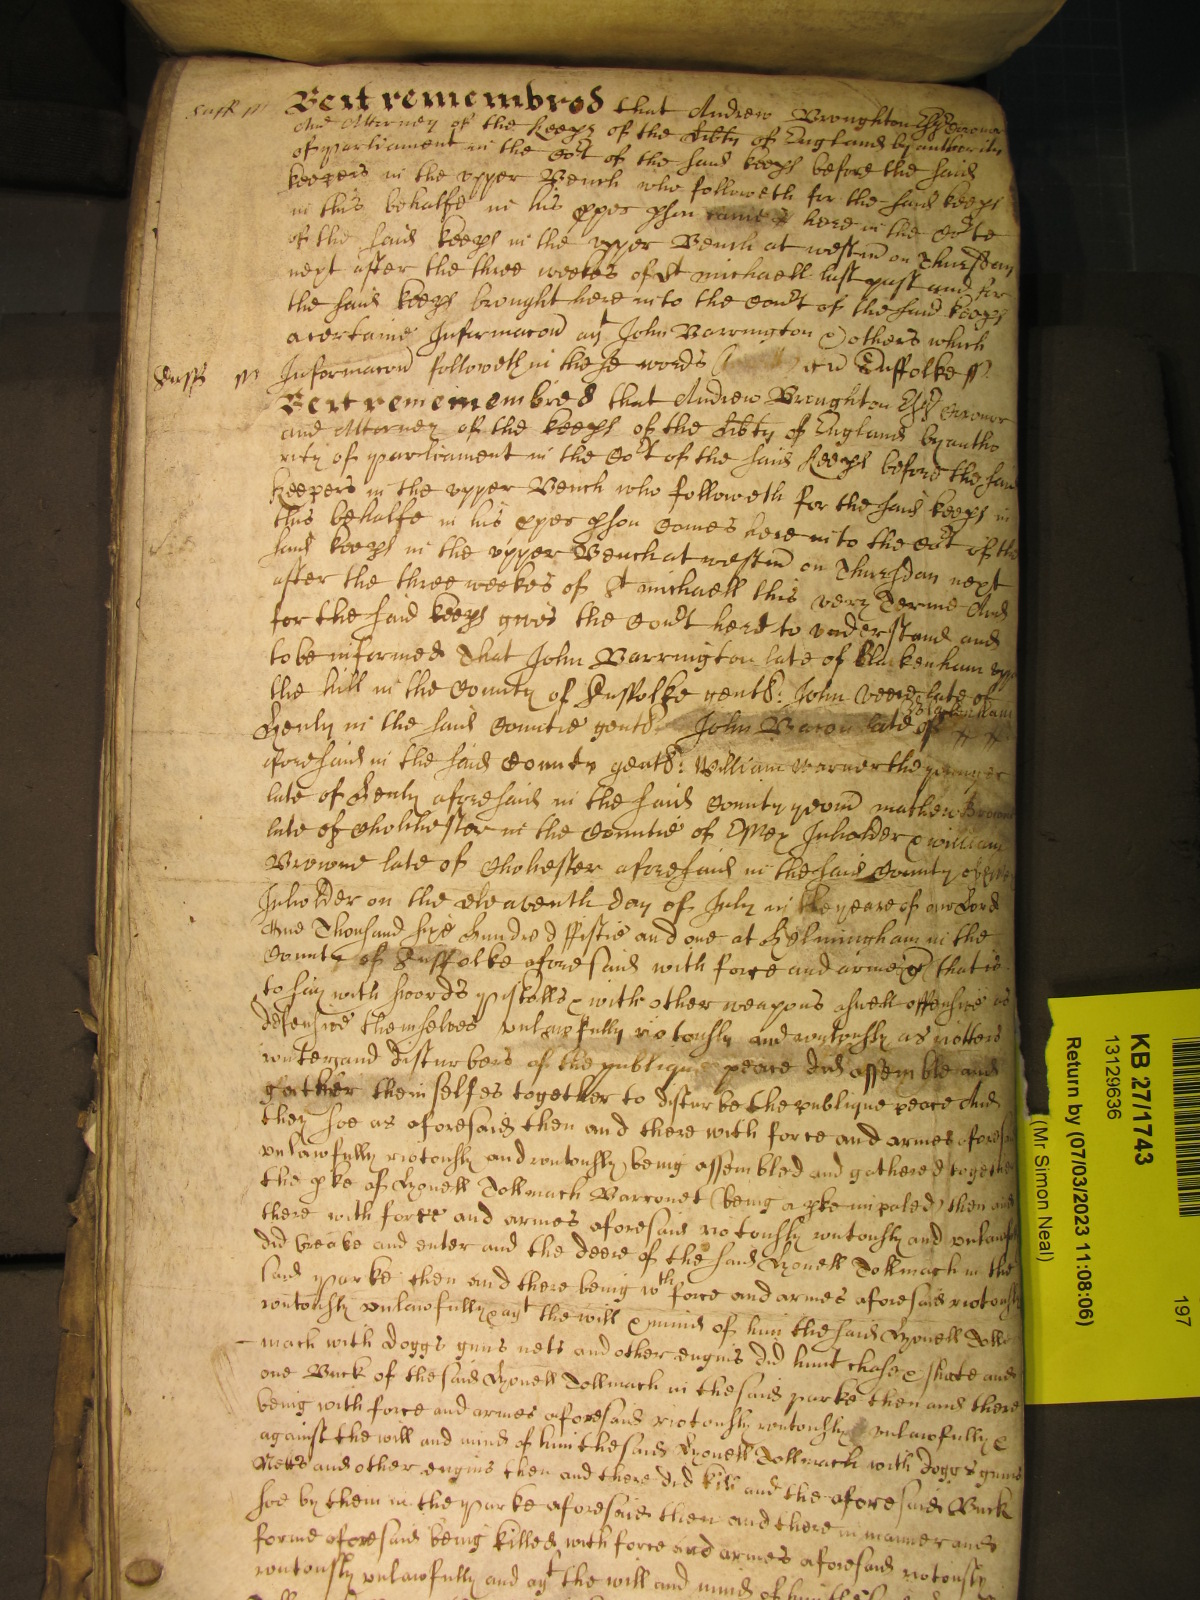 Suff ss
Bee it remembred that Andrew Broughton Esqr Coronor
And Attorney of the Keeps of the libty of England by authoritie
of parliament in the Cot of the said keeps before the said
keepers in the upper Bench who followeth for the said keeps
in this behalfe in his pper pson came here in the Cote
of the said keeps in the upper Bench at westm on Thursday
next after the three weekes of St michaell last past and for
the said keeps brought here into the Court of the said keeps
a certaine Informacon agt John Barrington & others which
Informacon followeth in these words Suffolke ss
Suff ss
Bee it remembred that Andrew Broughton Esqr Coronor
and Attorney of the keeps of the libty of England by autho
rity of parliament in the Cot of the said keeps before the said
keepers in the upper Bench who followeth for the said keeps in
this behalfe in his pper pson Comes here into the Cot of the
said keeps in the upper Bench at westm on Thursday next
after the three weekes of St michaell this very Terme And
for the said keeps gives the Court here to understand and
to be informed That John Barrington late of Blackenham upp
the hill in the County of Suffolke gent: John Veere late of
Henly in the said Countie gent John Bacon late of Blakenham
aforesaid in the said County gent: William Warner the younger
late of Henly aforesaid in the said County yeom mathew Browne
late of Cholchester in the Countie of Essex Inholder & william
Browne late of Cholester aforesaid in the said County of Essex
Inholder on the eleaventh day of July in the yeare of our Lord
One Thousand sixe hundred fiftie and one at Helmingham in the
County of Suffolke aforesaid with force and armes that is
to say with swords pistolls & with other weapons aswell offensive as
defensive themselves unlawfully riotously and routously as riotters
routers and disturbers of the publique peace did assemble and
gather themselfes together to disturbe the publique peace And
they soe as aforesaid then and there with force and armes aforesaid
unlawfully riotously and routously being assembled and gathered together
the pke of Lyonell Tollmach Barronet (being a pke impaled) then and
there with force and armes aforesaid riotously routously and unlawfully
did breake and enter and the deere of the said Lyonell Tollmach in the
said parke then and there being wth force and armes aforesaid riotously
routously unlawfully & agt the will & mind of him the said Lyonell Tolle
mach with doggs guns nets and other engins did hunt chase & shoote and
one Buck of the said Lyonell Tollmach in the said parke then and there
being with force and armes aforesaid riotously routously unlawfully &
against the will and mind of him the said Lyonell Tollmach with doggs guns
Netts and other engins then and there did kill and the aforesaid Buck
soe by them in the parke aforesaid then and there in manner and
forme aforesaid being killed with force and armes aforesaid riotously
routously unlawfully and agt the will and mind of him the said
KB 27/1743
13129636
Return by (07/03/2023 11:08:06)
(Mr Simon Neal)
197